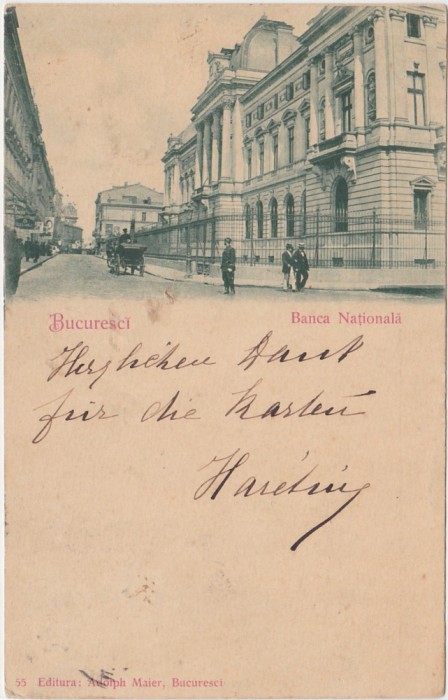 Bucuresci
Banca Națională
Herzlichen Dank
für die Karten
55 Editura: Adolph Maier, Bucuresci